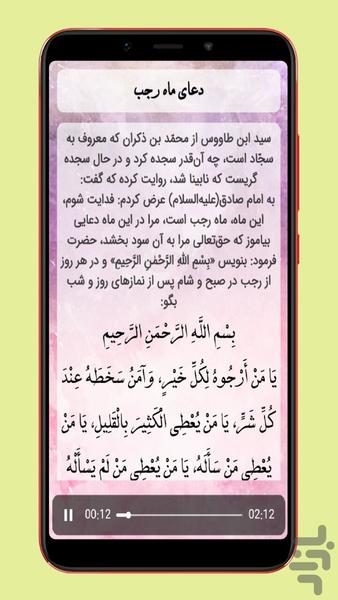 دعای ماه رجب
سید ابن طاووس از محمّد بن ذکران که معروف به
سجّاد است، چه آن‌قدر سجده کرد و در حال سجده
گریست که نابینا شد، روایت کرده که گفت:
به امام صادق(علیه‌السلام) عرض کردم: فدایت شوم،
این ماه، ماه رجب است، مرا در این ماه دعایی
بیاموز که حق‌تعالی مرا به آن سود بخشد، حضرت
فرمود: بنویس «بِسْمِ اللهِ الرَّحْمٰنِ الرَّحِیمِ» و در هر روز
از رجب در صبح و شام پس از نمازهای روز و شب
بگو:
بِسْمِ اللَّهِ الرَّحْمَنِ الرَّحِيمِ
يَا مَنْ أَرْجُوهُ لِكُلِّ خَيْرٍ، وَآمَنُ سَخَطَهُ عِنْدَ
كُلِّ شَرٍّ، يَا مَنْ يُعْطِى الْكَثِيرَ بِالْقَلِيلِ، يَا مَنْ
يُعْطِى مَنْ سَأَلَهُ، يَا مَنْ يُعْطِى مَنْ لَمْ يَسْأَلْهُ
00:12 02:12
بازار